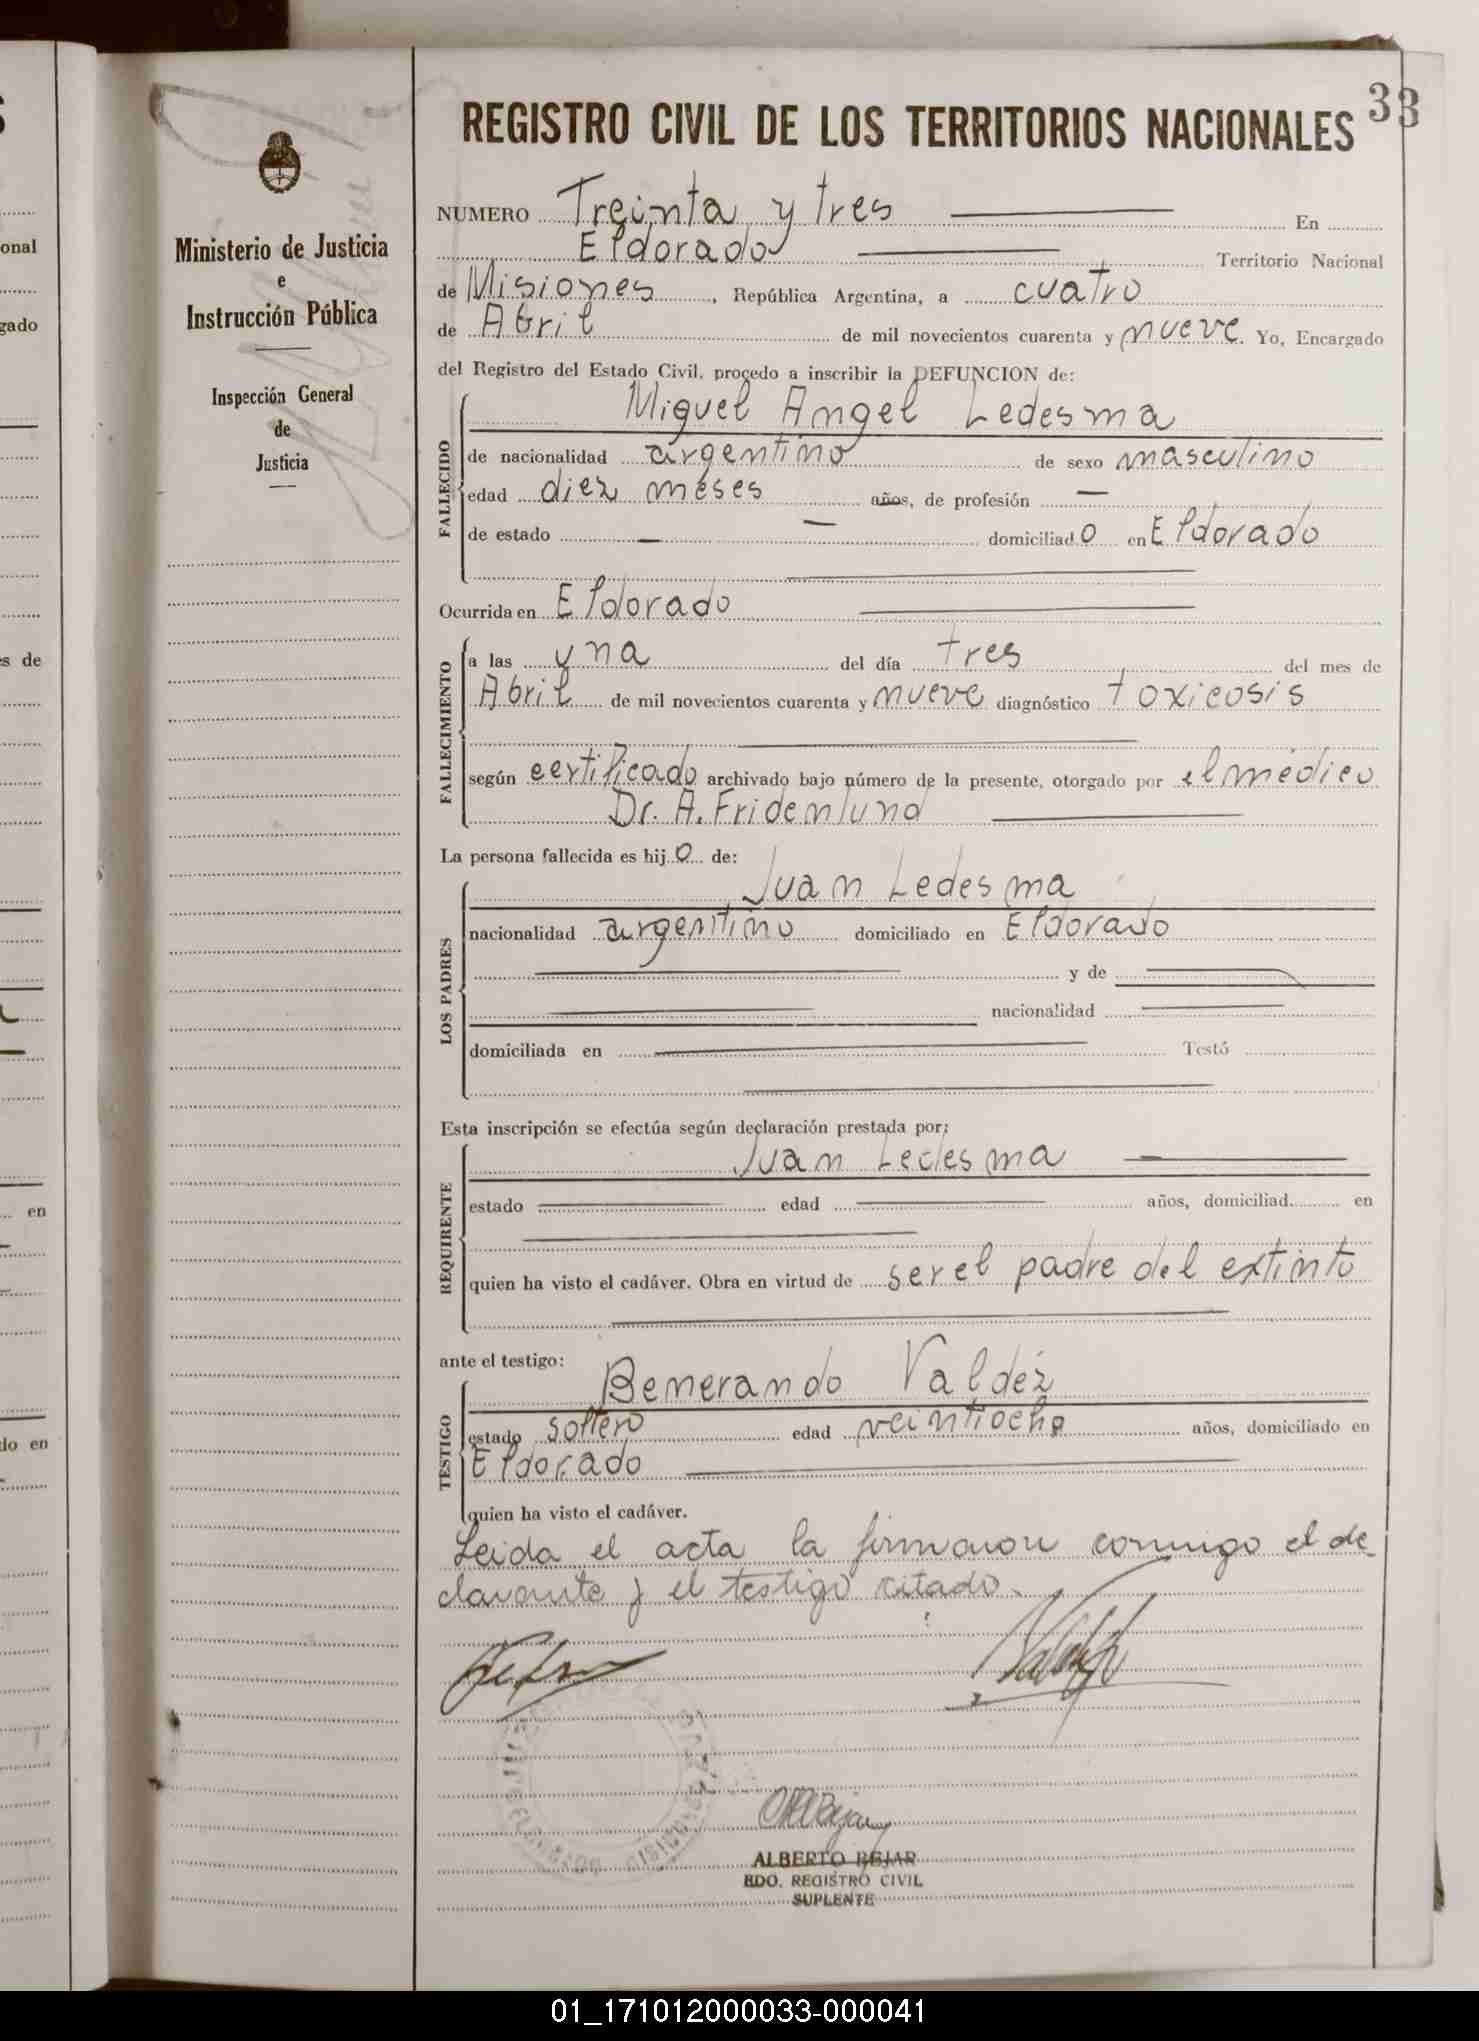 33
REGISTRO CIVIL DE LOS TERRITORIOS NACIONALES
Ministerio de Justicia
e
Instrucción Pública
Inspección General
de
Justicia
NUMERO Treinta y tres En
Eldorado Territorio Nacional
de Misiones, República Argentina, a cuatro
de Abril de mil novecientos cuarenta y nueve. Yo, Encargado
del Registro del Estado Civil, procedo a inscribir la DEFUNCION de:
FALLECIDO
Miguel Angel Ledesma
de nacionalidad argentino de sexo masculino
edad diez meses años, de profesión —
de estado — — domiciliado en Eldorado
Ocurrida en Eldorado
FALLECIMIENTO
a las una del día tres del mes de
Abril de mil novecientos cuarenta y nueve diagnóstico toxicosis
según certificado archivado bajo número de la presente, otorgado por el médico
Dr. A. Fridenlund
La persona fallecida es hijo de:
LOS PADRES
Juan Ledesma
nacionalidad argentino domiciliado en Eldorado
y de
nacionalidad
domiciliada en Testó
Esta inscripción se efectúa según declaración prestada por:
REQUIRENTE
Juan Ledesma
estado edad años, domiciliad en
quien ha visto el cadáver. Obra en virtud de ser el padre del extinto
ante el testigo:
TESTIGO
Benerando Valdéz
estado soltero edad veintiocho años, domiciliado en
Eldorado
quien ha visto el cadáver.
Leida el acta la firmaron conmigo el de-
clarante y el testigo citado.
ALBERTO BEJAR
EDO. REGISTRO CIVIL
SUPLENTE
01_171012000033-000041
onal
gado
s de
en
do en